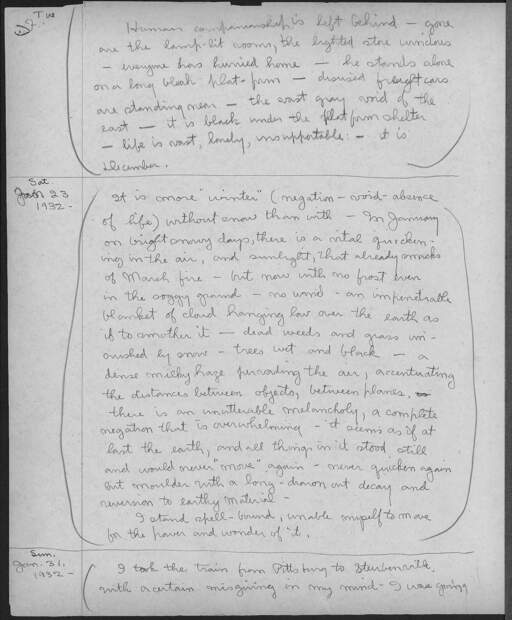 Tue
Human companionship is left behind — gone
are the lamp-lit rooms, the lighted store windows
— everyone has hurried home — he stands alone
on a long bleak plat-form — disused freight cars
are standing near — the vast gray void of the
east — it is black under the platform shelter
— life is vast, lonely, insupportable: — it is
December.
Sat.
Jan 23
1932 –
It is more "winter" (negation – void – absence
of life) without snow than with — In January
on bright snowy days, there is a vital quicken-
ing in the air, and sunlight, that already smacks
of March fire — but now with no frost even
in the soggy ground — no wind – an impenetrable
blanket of cloud hanging low over the earth as
if to smother it — dead weeds and grass un-
ourished by snow – trees wet and black — a
dense milky haze pervading the air, accentuating
the distances between objects, between planes,
there is an unutterable melancholy, a complete
negation that is overwhelming – it seems as if at
last the earth, and all things in it stood still
and would never "move" again – never quicken again
but moulder with a long-drawn out decay and
reversion to earthy material –
I stand spell-bound, unable myself to move
for the power and wonder of it.
Sun.
Jan. 31,
1932 –
I took the train from Pittsburg to Steubenville
with a certain misgiving in my mind – I was going